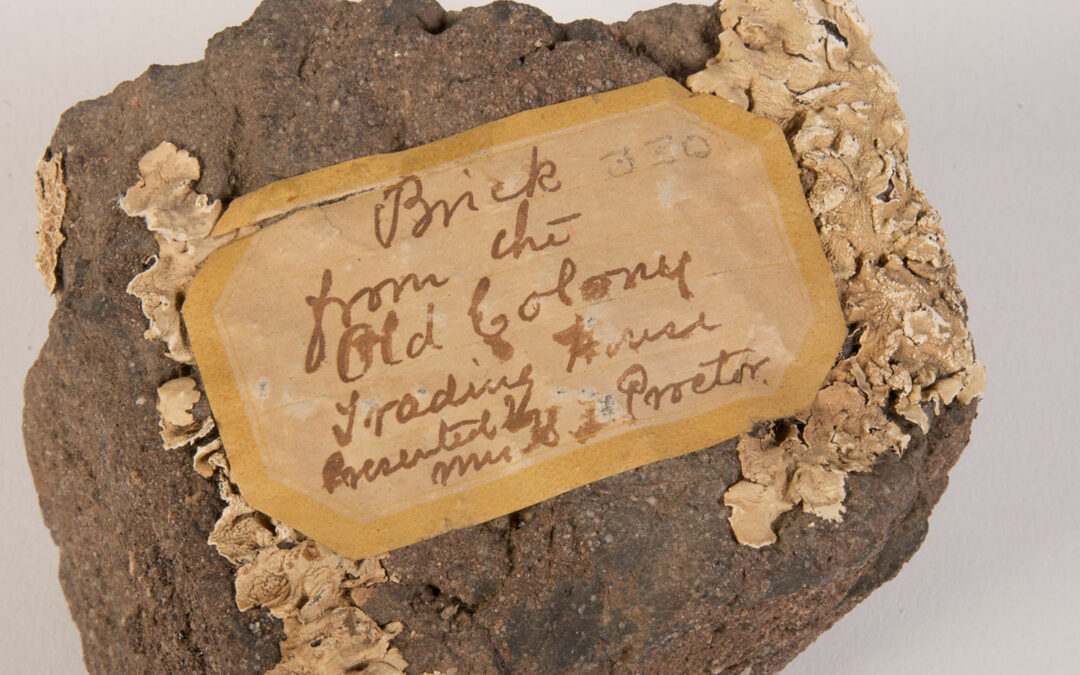 330
Brick
from the
Old Colony
Trading House
Presented by
Proctor.